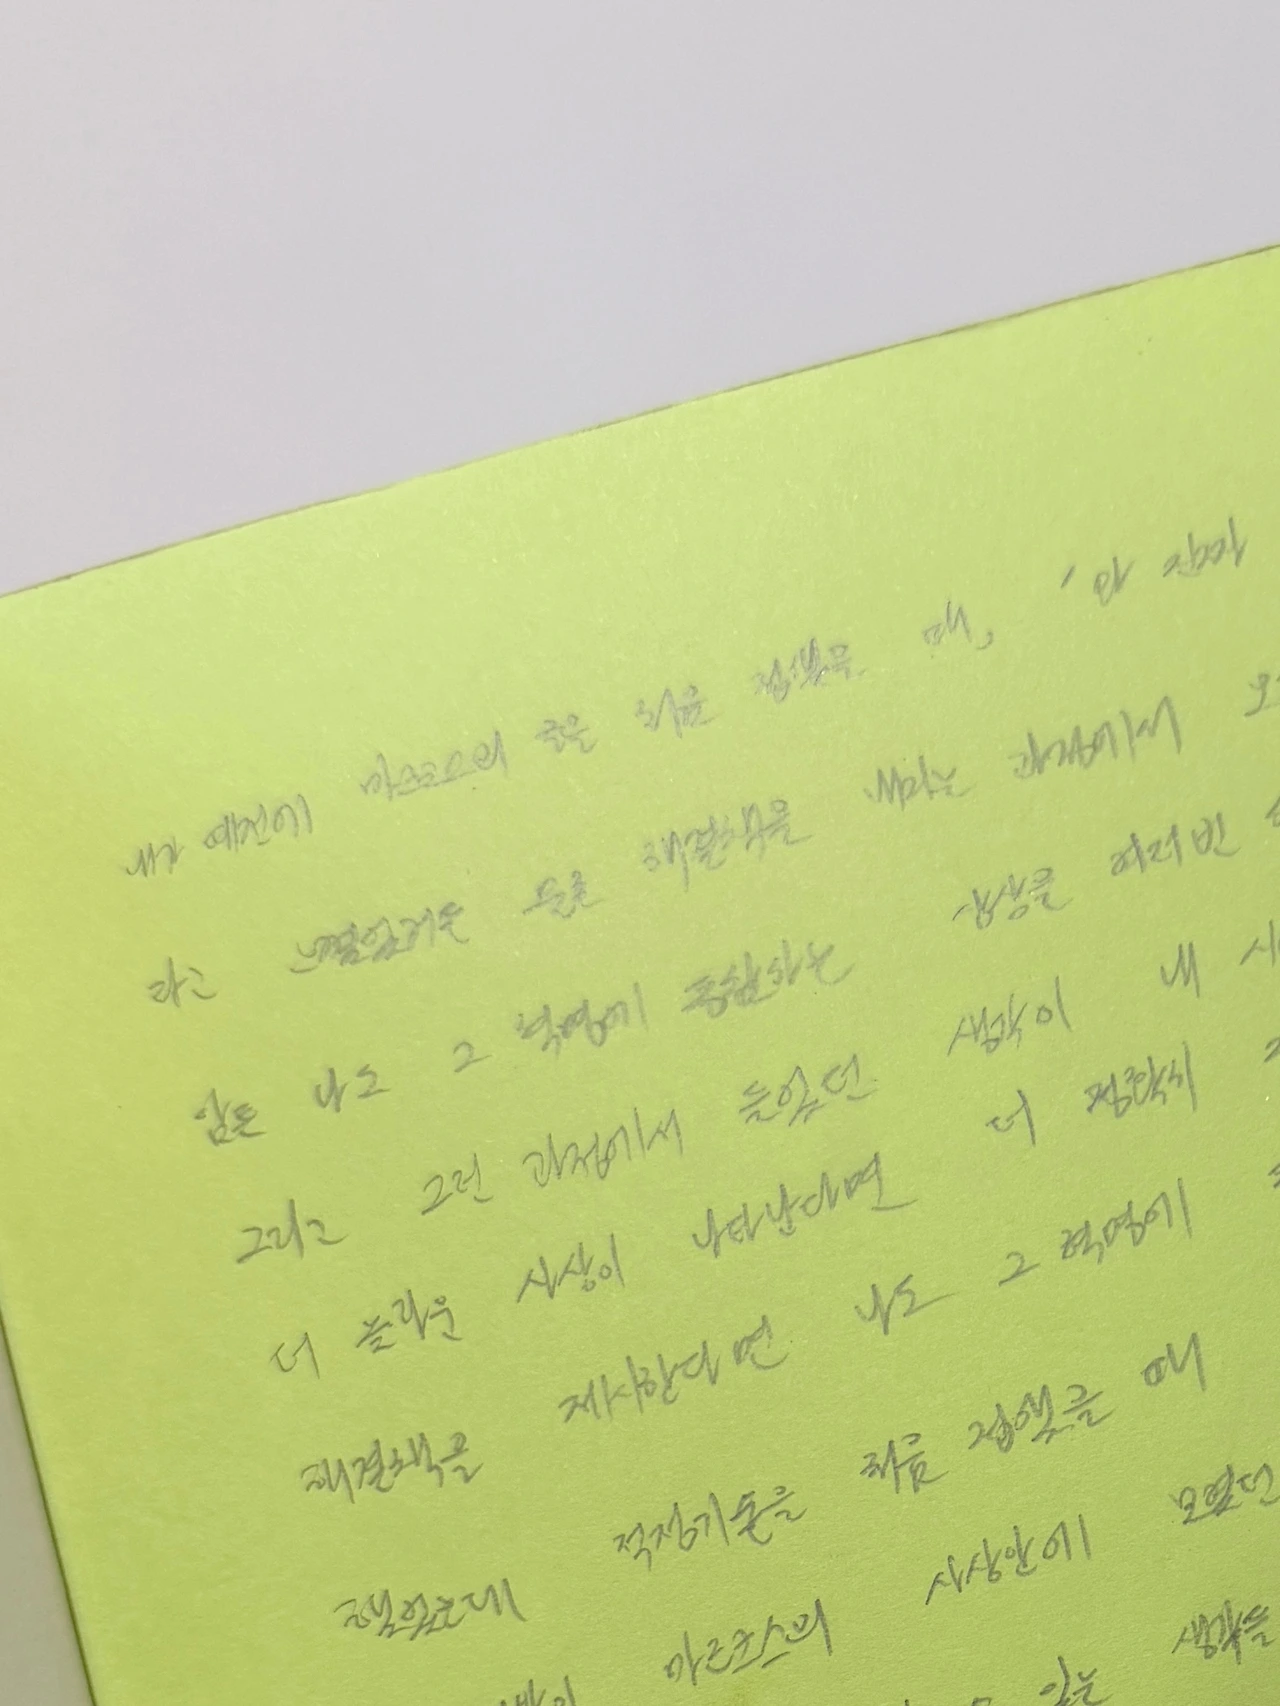 내가 예전에 마르크스의 글을 처음 접했을 때, '와 진짜
라고 느꼈었거든 둘로 해결책을 내리는 과정에서
암튼 나도 그 혁명에 동참하는 상상을 여러번
그리고 그런 과정에서 들었던 생각이 내
더 놀라운 사상이 나타난다면 더 정확히
해결책을 제시한다면 나도 그 혁명에
했었는데 적정기술을 처음 접했을 때
마르크스의 사상안에 모였던
있는 생각들